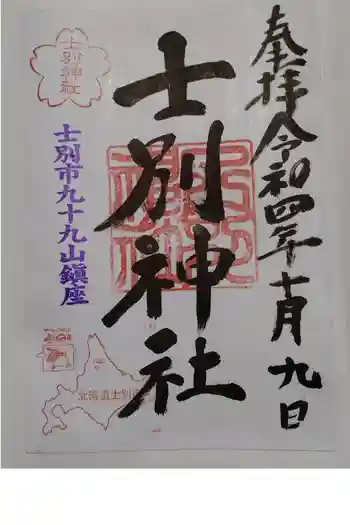 奉拝 令和四年十月九日
士別神社
士別神社
士別市九十九山鎮座
北海道士別市